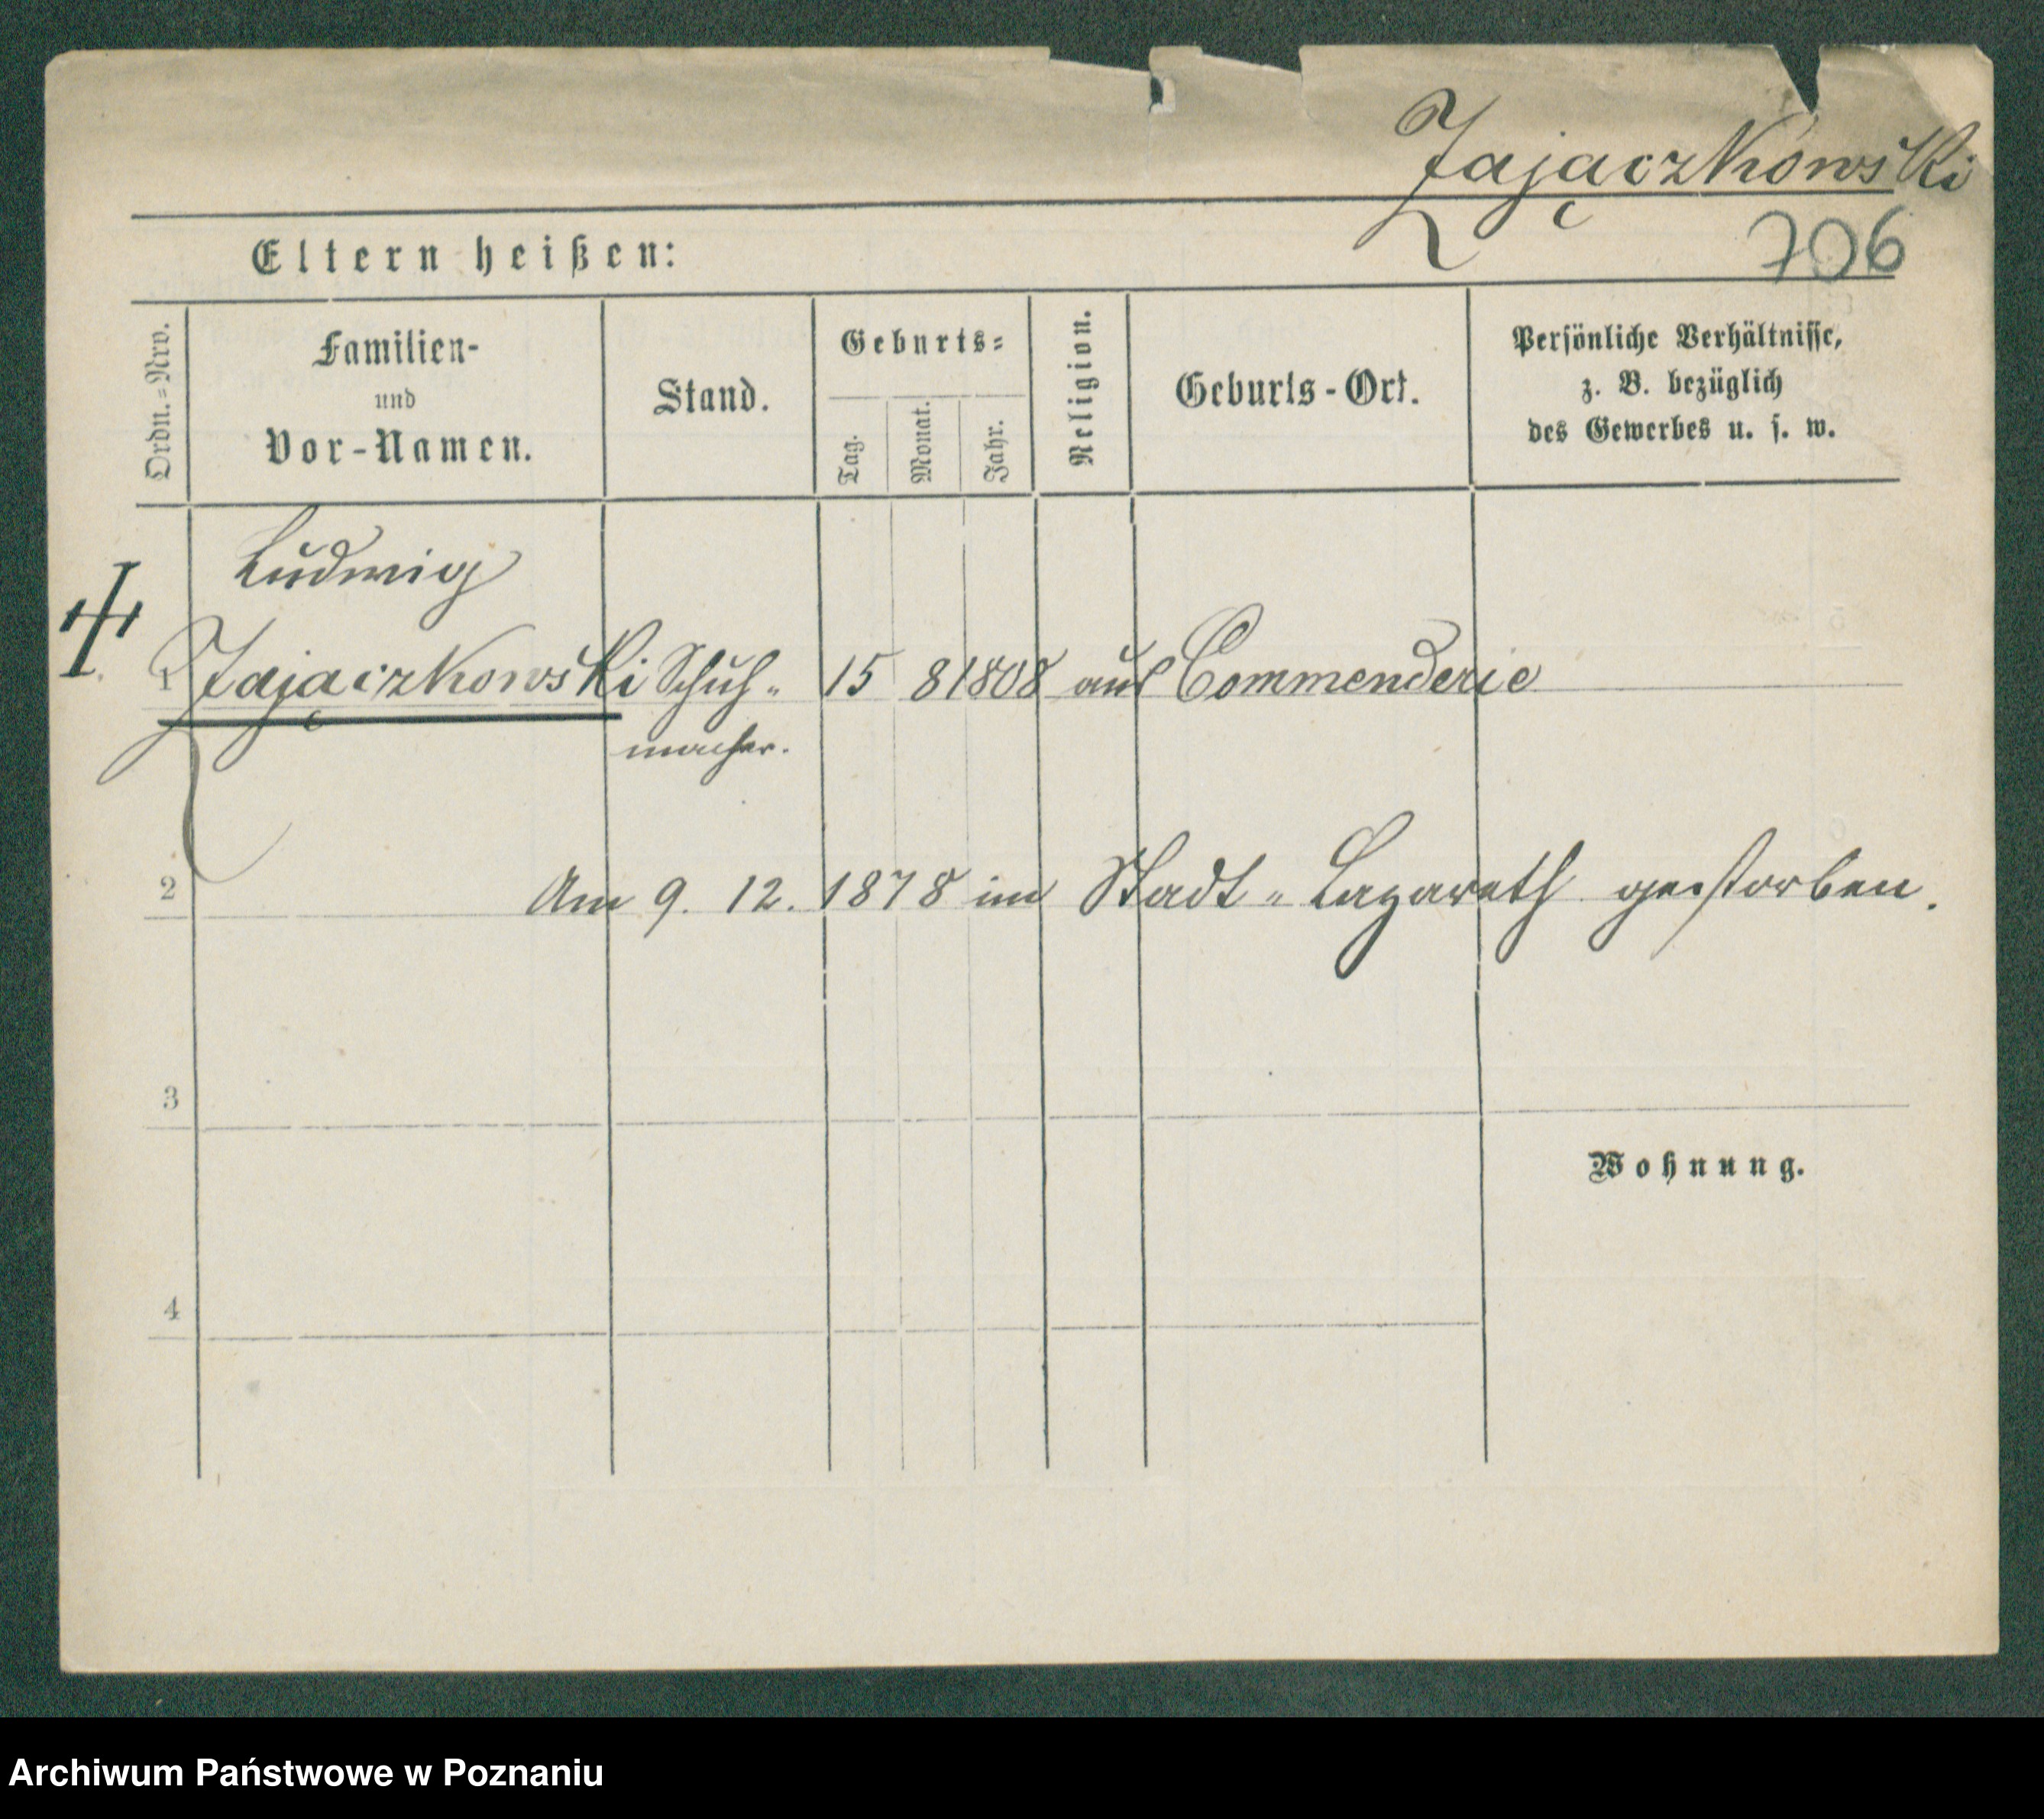 Zajączkowski
706
Eltern heißen:
Ordn.=Nro.
Familien-
und
Vor-Namen.
Stand.
Geburts=
Tag.
Monat.
Jahr.
Religion.
Geburts-Ort.
Persönliche Verhältnisse,
z. B. bezüglich
des Gewerbes u. s. w.
Ludwig
1 Zajączkowski Schuh= 15 8 1808 aus Commenderie
macher.
2 Am 9. 12. 1878 im Stadt=Lazareth gestorben.
3
Wohnung.
4
Archiwum Państwowe w Poznaniu